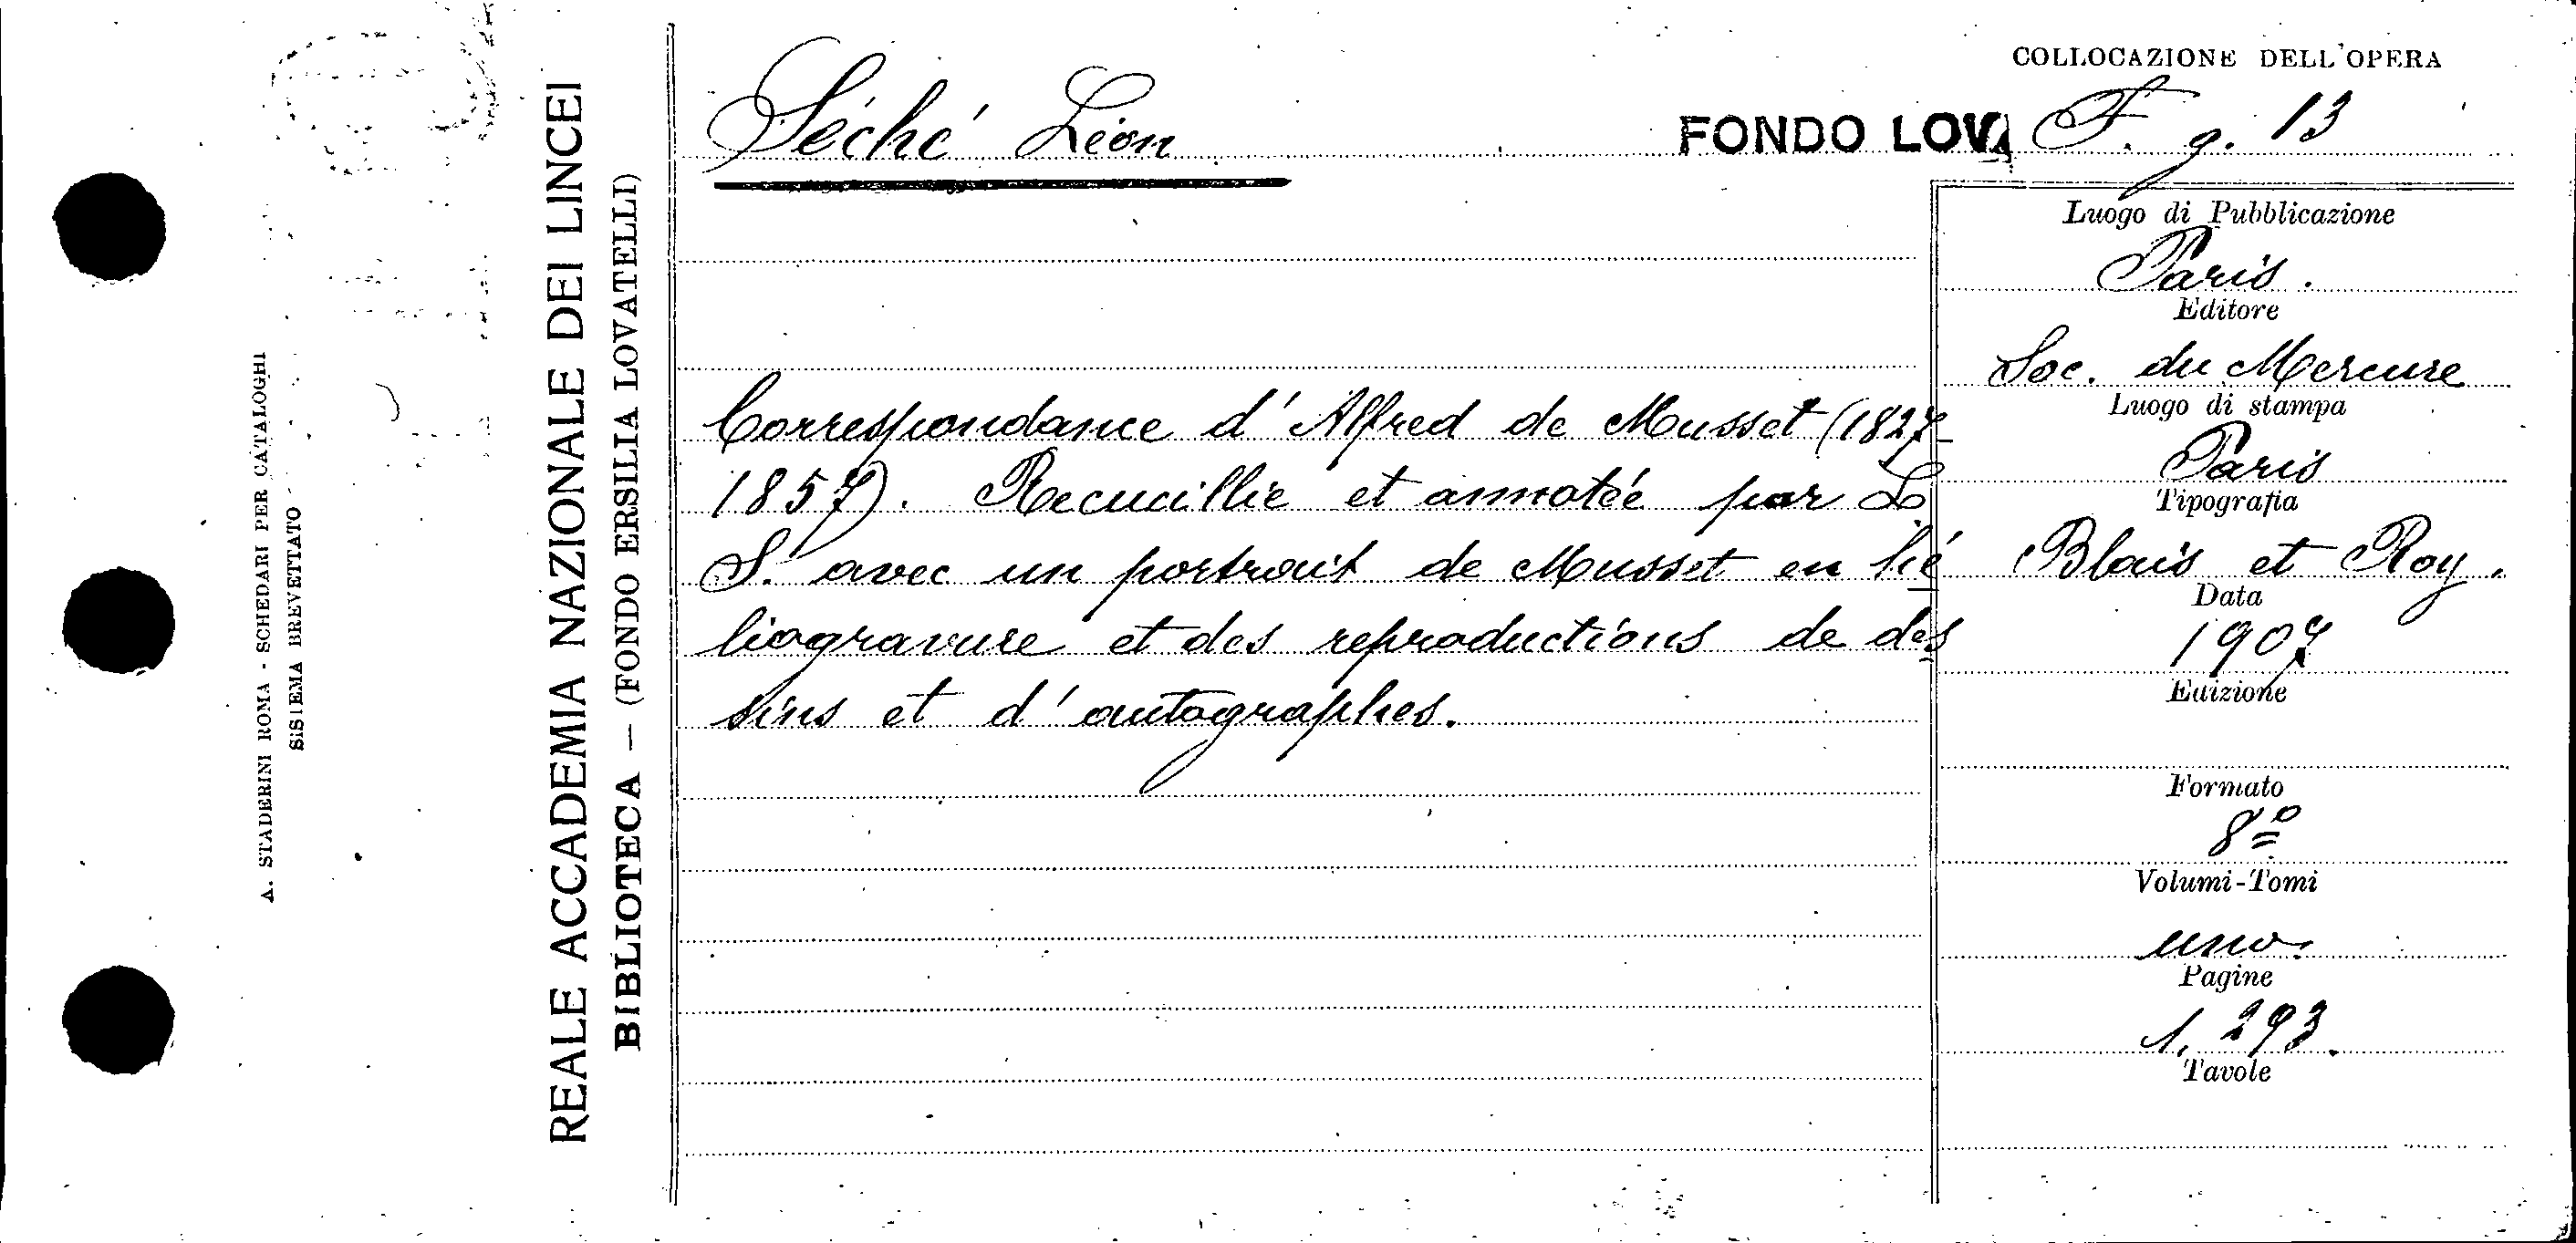 A. STADERINI ROMA - SCHEDARI PER CATALOGHI
SISTEMA BREVETTATO
REALE ACCADEMIA NAZIONALE DEI LINCEI
BIBLIOTECA — (FONDO ERSILIA LOVATELLI)
COLLOCAZIONE DELL'OPERA
Séché Léon
FONDO LOVA F. g. 13
Correspondance d'Alfred de Musset (1827-
1857). Recueillie et annotée par L
S. avec un portrait de Musset en hé
liogravure et des reproductions de des
sins et d'autographes.
Luogo di Pubblicazione
Paris.
Editore
Soc. du Mercure
Luogo di stampa
Paris
Tipografia
Blais et Roy.
Data
1907
Edizione
Formato
8º
Volumi-Tomi
uno.
Pagine
1, 293.
Tavole